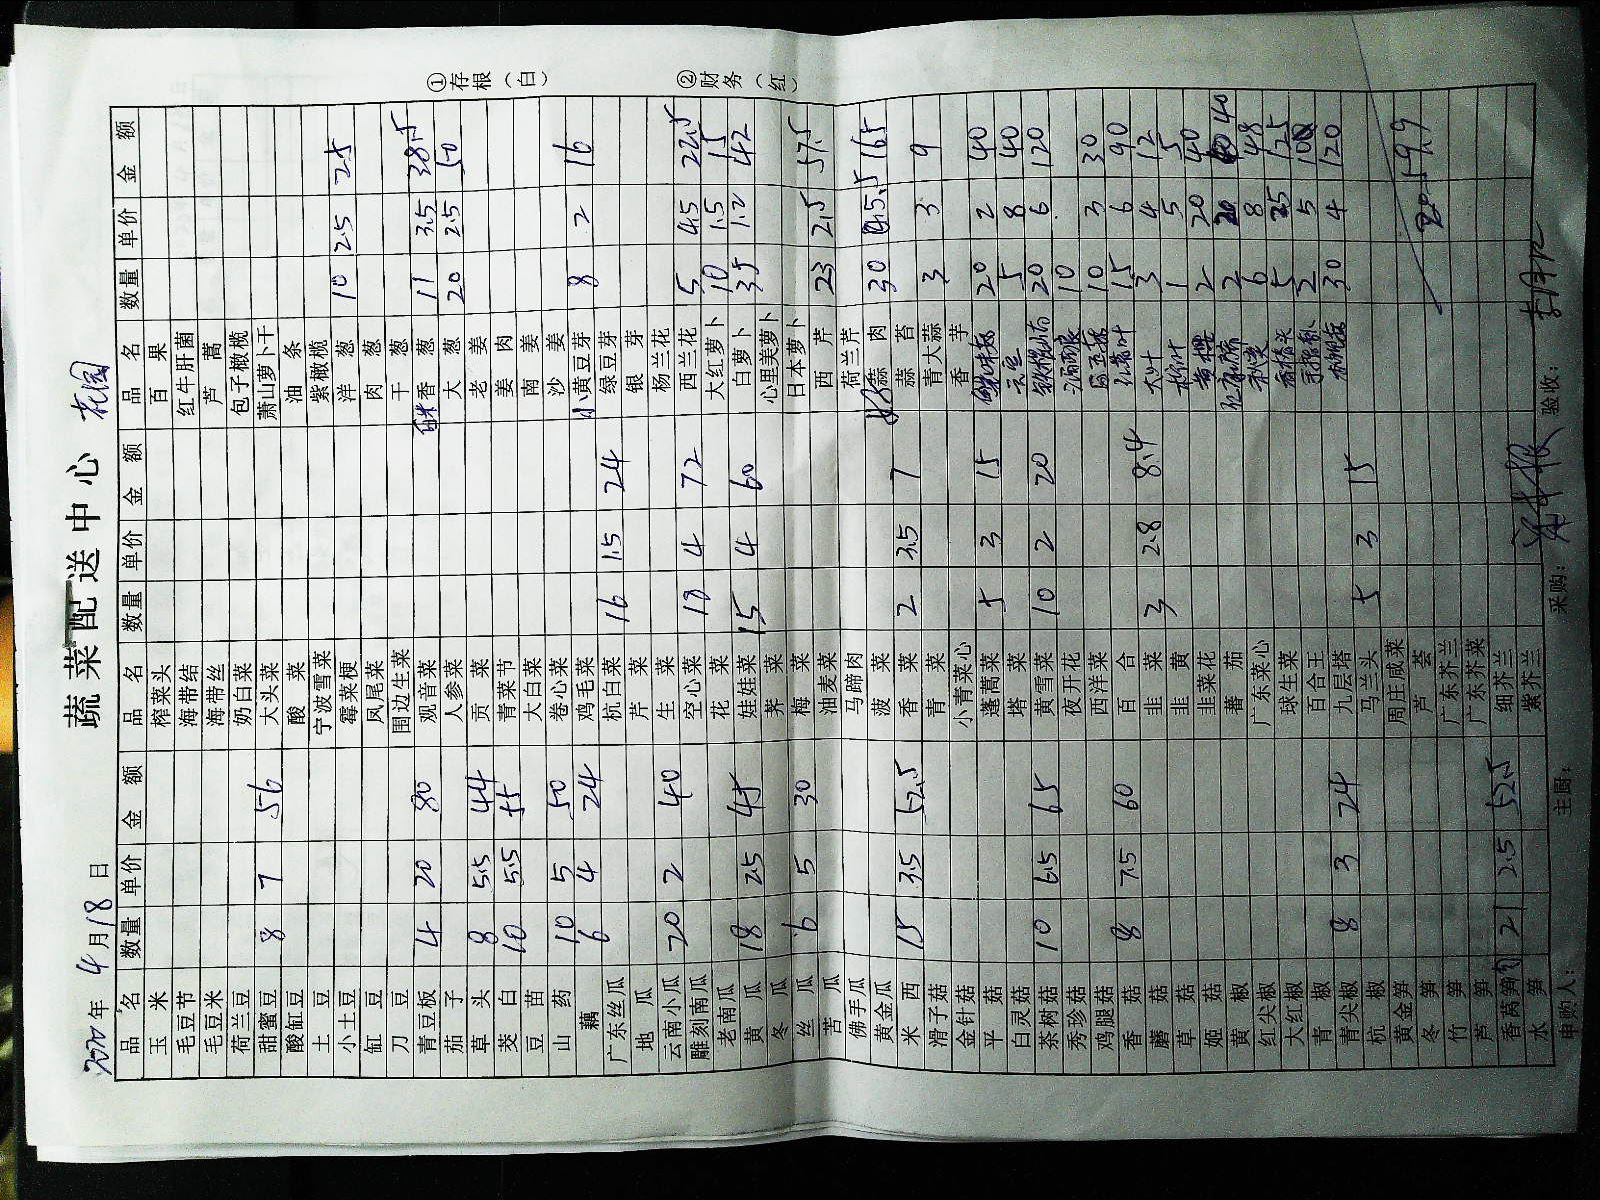 蔬菜配送中心 花园
年 4月18日
品名 数量 单价 金额 品名 数量 单价 金额 品名 数量 单价 金额
玉米 榨菜头 百果
毛豆节 海带结 红牛肝菌
毛豆米 海带丝 芦蒿
荷兰豆 奶白菜 包子橄榄
甜蜜豆 8 7 56 大头菜 萧山萝卜干
酸缸豆 酸菜 油条
土豆 宁波雪菜 紫橄榄
小土豆 霉菜梗 洋葱 10 2.5 25
缸豆 凤尾菜 肉葱
刀豆 围边生菜 干葱
青豆板 4 20 80 观音菜 香葱 11 3.5 38.5
茄子 人参菜 大葱 20 2.5 50
草头 8 5.5 44 贡菜 老姜
茭白 10 5.5 55 青菜节 姜肉
豆苗 大白菜 南姜
山药 10 5 50 卷心菜 沙姜
藕 6 4 24 鸡毛菜 小黄豆芽 8 2 16
广东丝瓜 杭白菜 16 1.5 24 绿豆芽
地瓜 芹菜 银芽
云南小瓜 20 2 40 生菜 杨兰花
雕刻南瓜 空心菜 18 4 72 西兰花 5 4.5 22.5
老南瓜 花菜 大红萝卜 10 1.5 15
黄瓜 18 2.5 45 娃娃菜 15 4 60 白萝卜 35 1.2 42
冬瓜 荠菜 心里美萝卜
丝瓜 6 5 30 梅菜 日本萝卜
苦瓜 油麦菜 西芹 23 2.5 57.5
佛手瓜 马蹄肉 荷兰芹
黄金瓜 菠菜 蒜肉 30 5.5 165
米西 15 3.5 52.5 香菜 2 3.5 7 蒜苔
滑子菇 青菜 青大蒜 3 3 9
金针菇 小青菜心 香芋
平菇 蓬蒿菜 5 3 15 20 2 40
白灵菇 塔菜 5 8 40
茶树菇 10 6.5 65 黄雪菜 10 2 20 20 6 120
秀珍菇 夜开花 10
鸡腿菇 西洋菜 10 3 30
香菇 8 7.5 60 百合 红苋叶 15 6 90
蘑菇 韭菜 3 2.8 8.4 大叶 3 4 12
草菇 韭黄 1 5 5
姬菇 韭菜花 2 20 40
黄椒 蕃茄 2 20 40
红尖椒 广东菜心 6 8 48
大红椒 球生菜 5 25 125
青椒 百合王 2 5 10
青尖椒 8 3 24 九层塔 30 4 120
杭椒 马兰头 5 3 15
黄金笋 周庄咸菜
冬笋 芦荟
竹笋 广东芥兰
芦笋 广东芥菜
香莴笋 21 2.5 52.5 细芥兰
水笋 紫芥兰
申购人： 主厨： 采购： 验收：
①存根（白）
②财务（红）